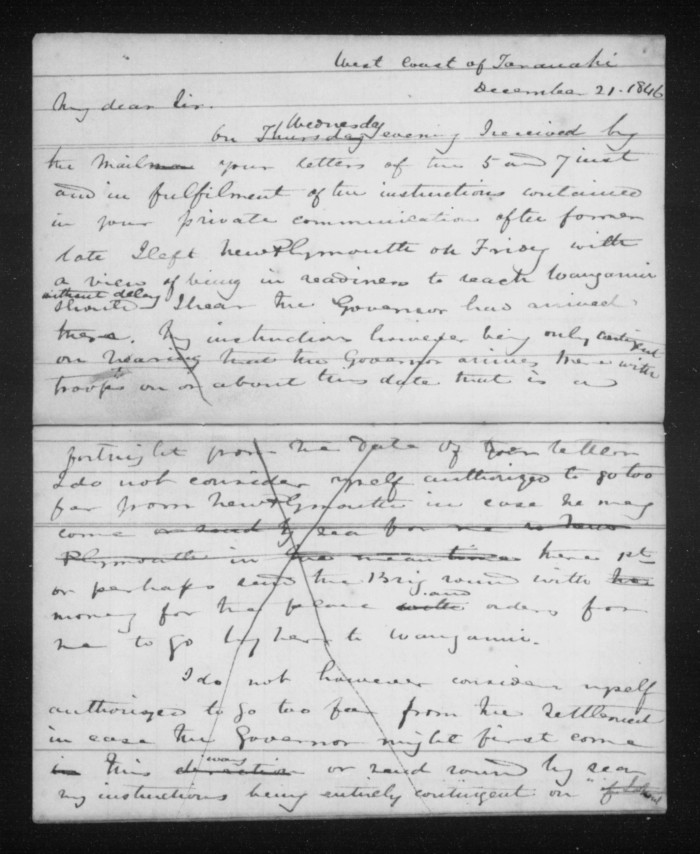 West Coast of Taranaki
December 21. 1846
My dear Sir.
Wednesday
On Thursday evening I received by
the Mail your letters of the 5 and 7 inst
and in fulfilment of the instructions contained
in your private communication of the former
date I left New Plymouth on Friday with
a view of being in readiness to reach Wanganui
without delay
should I hear the Governor had arrived
there. My instructions however being only contingent
on hearing that the Governor arrives there with
troops on or about this date that is a
fortnight from the date of your letter
I do not consider myself authorized to go too
far from New Plymouth in case he may
come or send by sea for me to New
Plymouth in the meantime here 1st
or perhaps send the Brig round with her
money for the place with and orders for
me to go by her to Wanganui.
I do not however consider myself
authorized to go too far from the settlement
in case the Governor might first come
in this direction way or send round by sea
my instructions being entirely contingent on "if